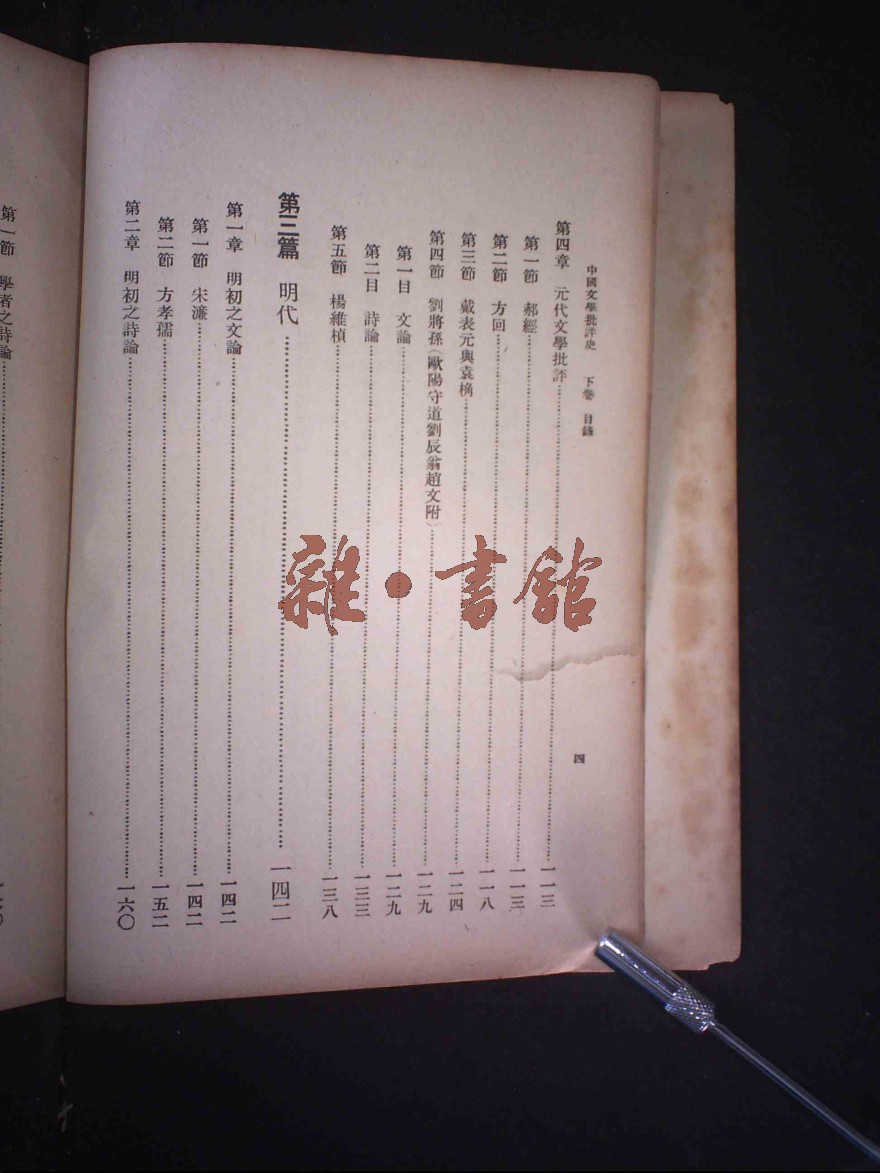 中國文學批評史　下卷　目錄　四
第四章　元代文學批評……一一三
第一節　郝經……一一三
第二節　方回……一一八
第三節　戴表元與袁桷……一二四
第四節　劉將孫（歐陽守道劉辰翁趙文附）……一二九
第一目　文論……一二九
第二目　詩論……一三三
第五節　楊維楨……一三八
第三篇　明代……一四二
第一章　明初之文論……一四二
第一節　宋濂……一四二
第二節　方孝孺……一五二
第二章　明初之詩論……一六〇
第一節　學者之詩論
雜·書館